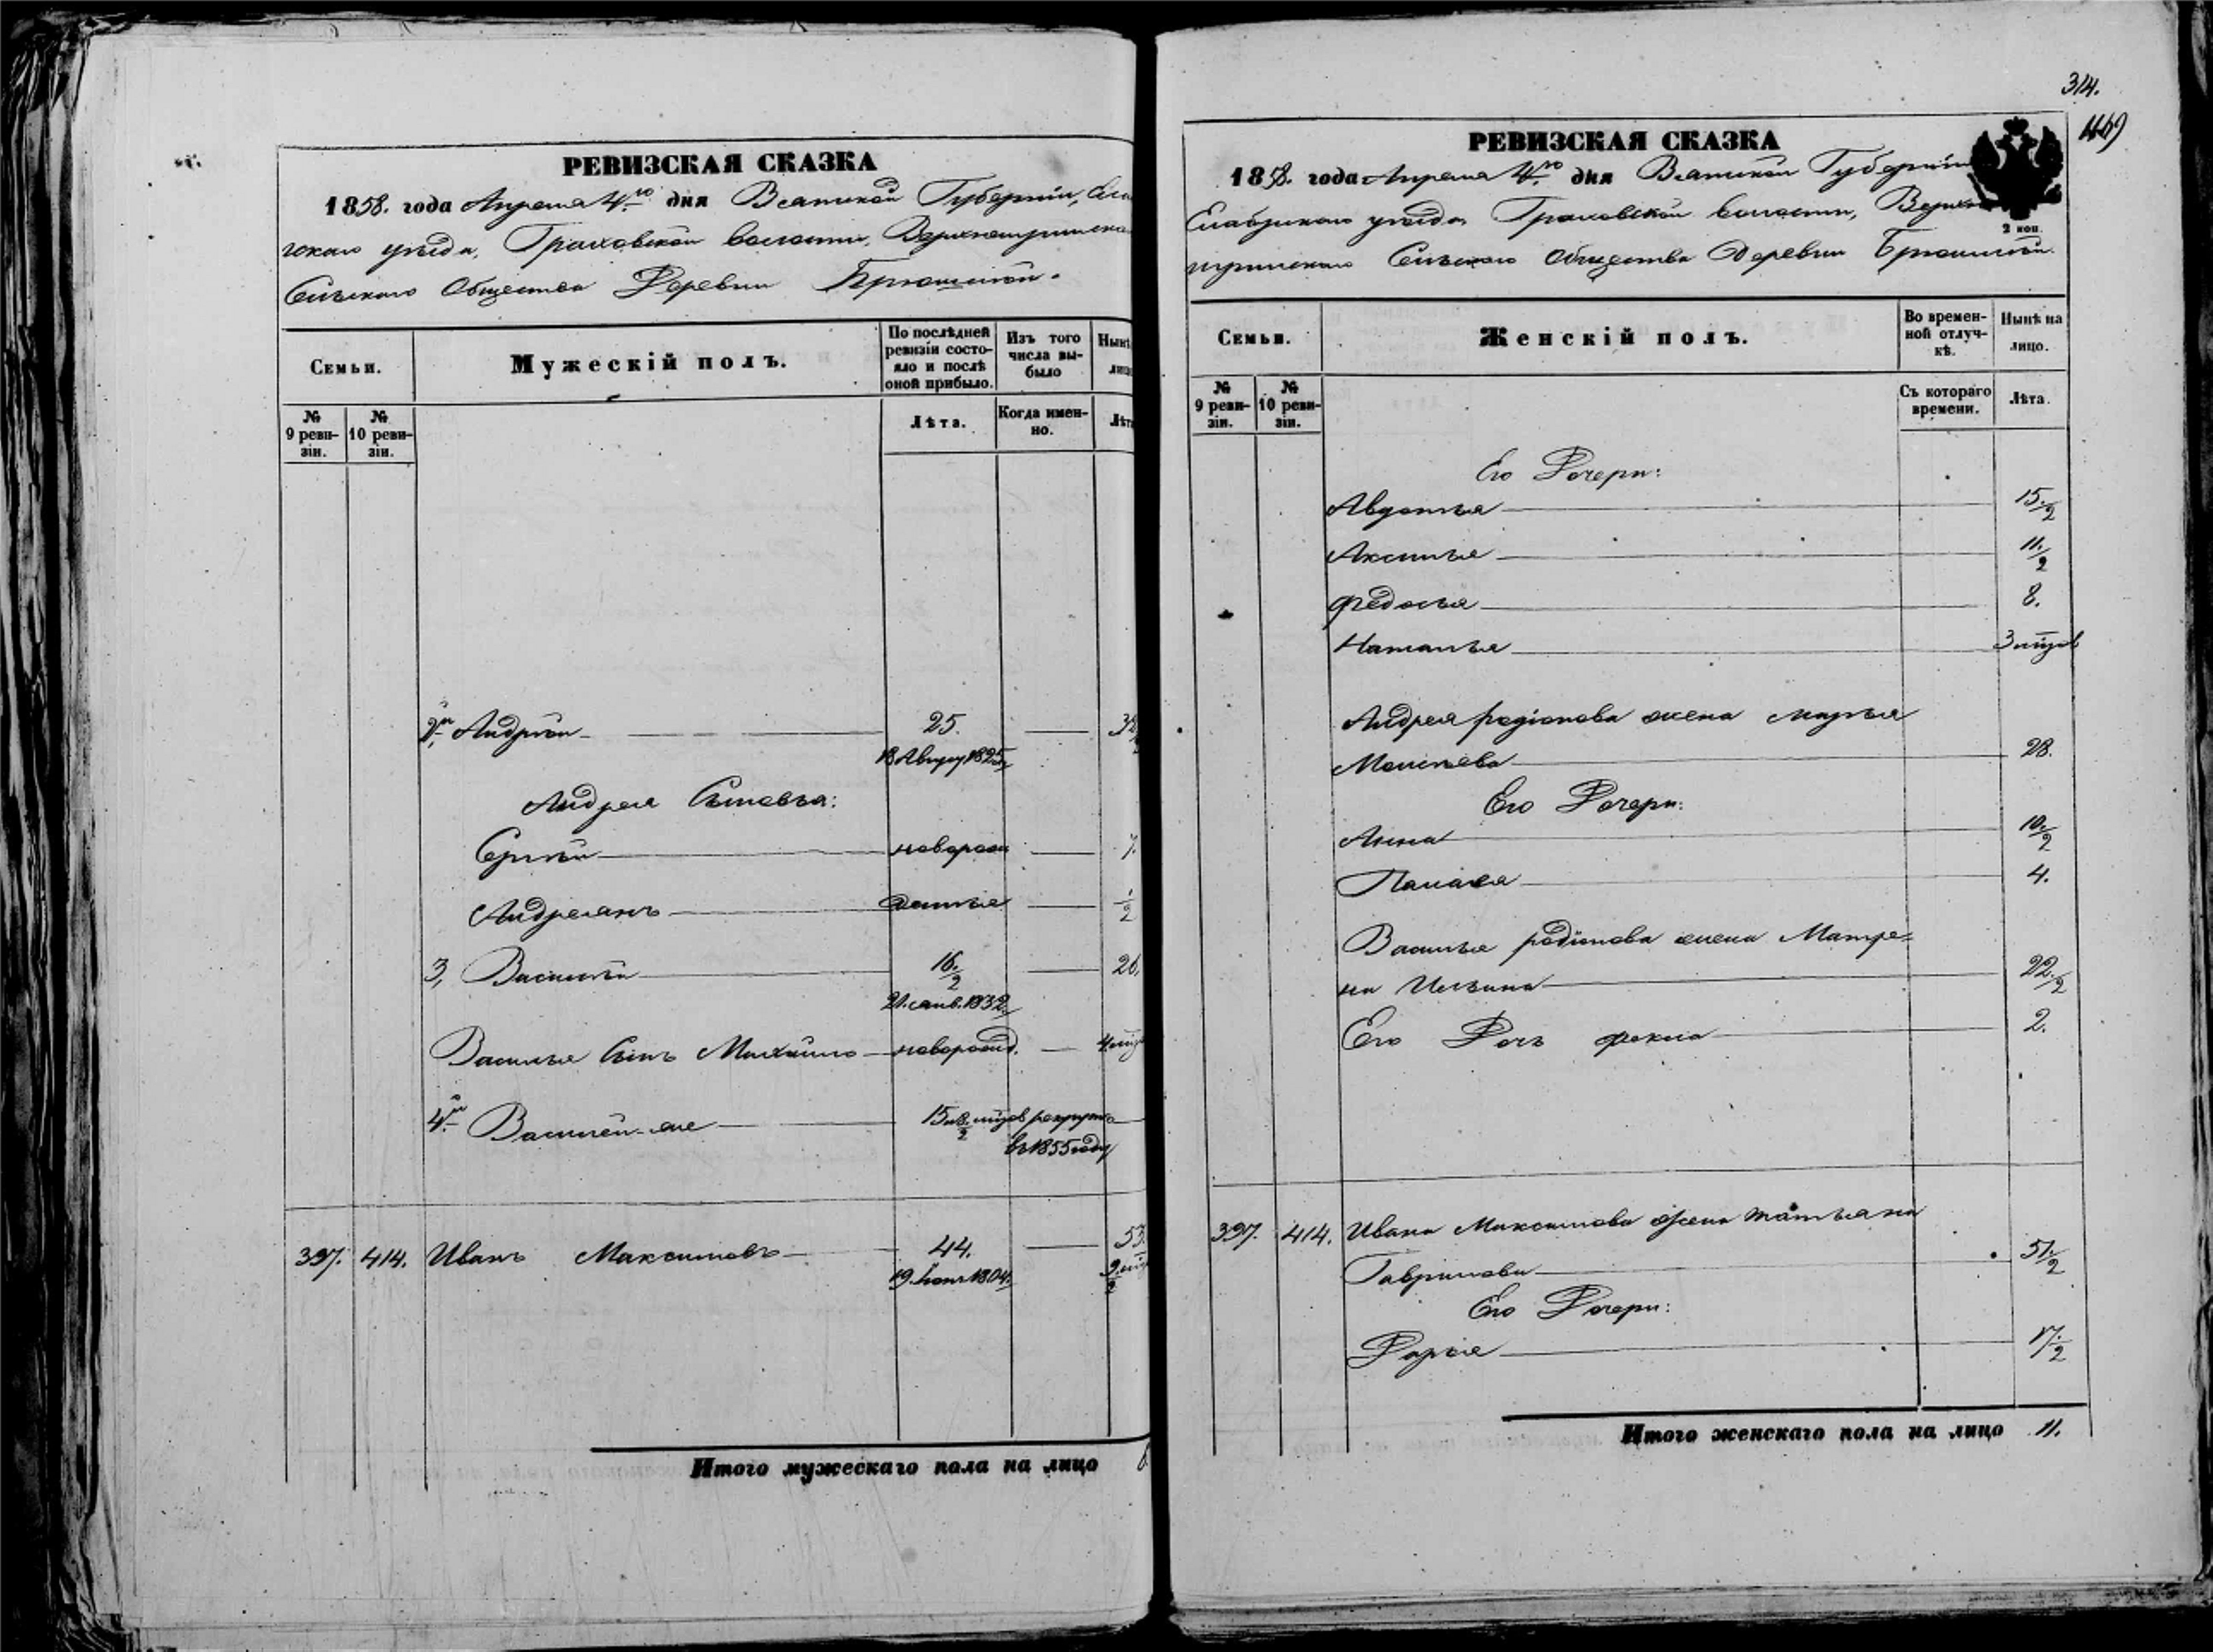 314.
469
РЕВИЗСКАЯ СКАЗКА
1858. года Апреля 4го дня Вятской Губерніи, Ела
гскаго уезда, Граховской волости,
Сельскаго Общества Деревни
Семьи.
Мужескій полъ.
По послѣдней ревизіи состояло и послѣ оной прибыло.
Изъ того числа выбыло
Нынѣ
лицо
№ 9 ревизіи.
№ 10 ревизіи.
Лѣта.
Когда именно.
Лѣта
2й Андрѣй 25.
18 Август 1825
Андрея Сыновья:
Сергѣй новорож 7.
Андреянъ данные 1/2
3, Василій 16./2 26.
21. янв. 1832
Василья Сынъ Михайло новорожд. 4 мѣс
4й Василей же 15 1/2 рекрут
въ 1855 году
397. 414. Иванъ Максимовъ 44. 53.
19. 1804
Итого мужескаго пола на лицо
РЕВИЗСКАЯ СКАЗКА
1858. года Апреля 4го дня Вятской Губерніи
Елабускаго уезда, Граховской волости,
Сельскаго Общества Деревни
2 коп.
Семьи.
Женскій полъ.
Во временной отлучкѣ.
Нынѣ на лицо.
№ 9 ревизіи.
№ 10 ревизіи.
Съ котораго времени.
Лѣта.
Его Дочери:
Авдотья 15./2
Аксинья 11./2
Федосья 8.
Наталья 3 мѣсяц
Андрея родіонова жена марья
Моисѣева 28.
Его Дочери:
Анна 10./2
Палагея 4.
Василья родіонова жена Матре=
на Ильина 22./2
Его Дочь фекла 2.
397. 414. Ивана Максимова жена татьяна
Гаврилова 51./2
Его Дочери:
Дарья 17./2
Итого женскаго пола на лицо 11.